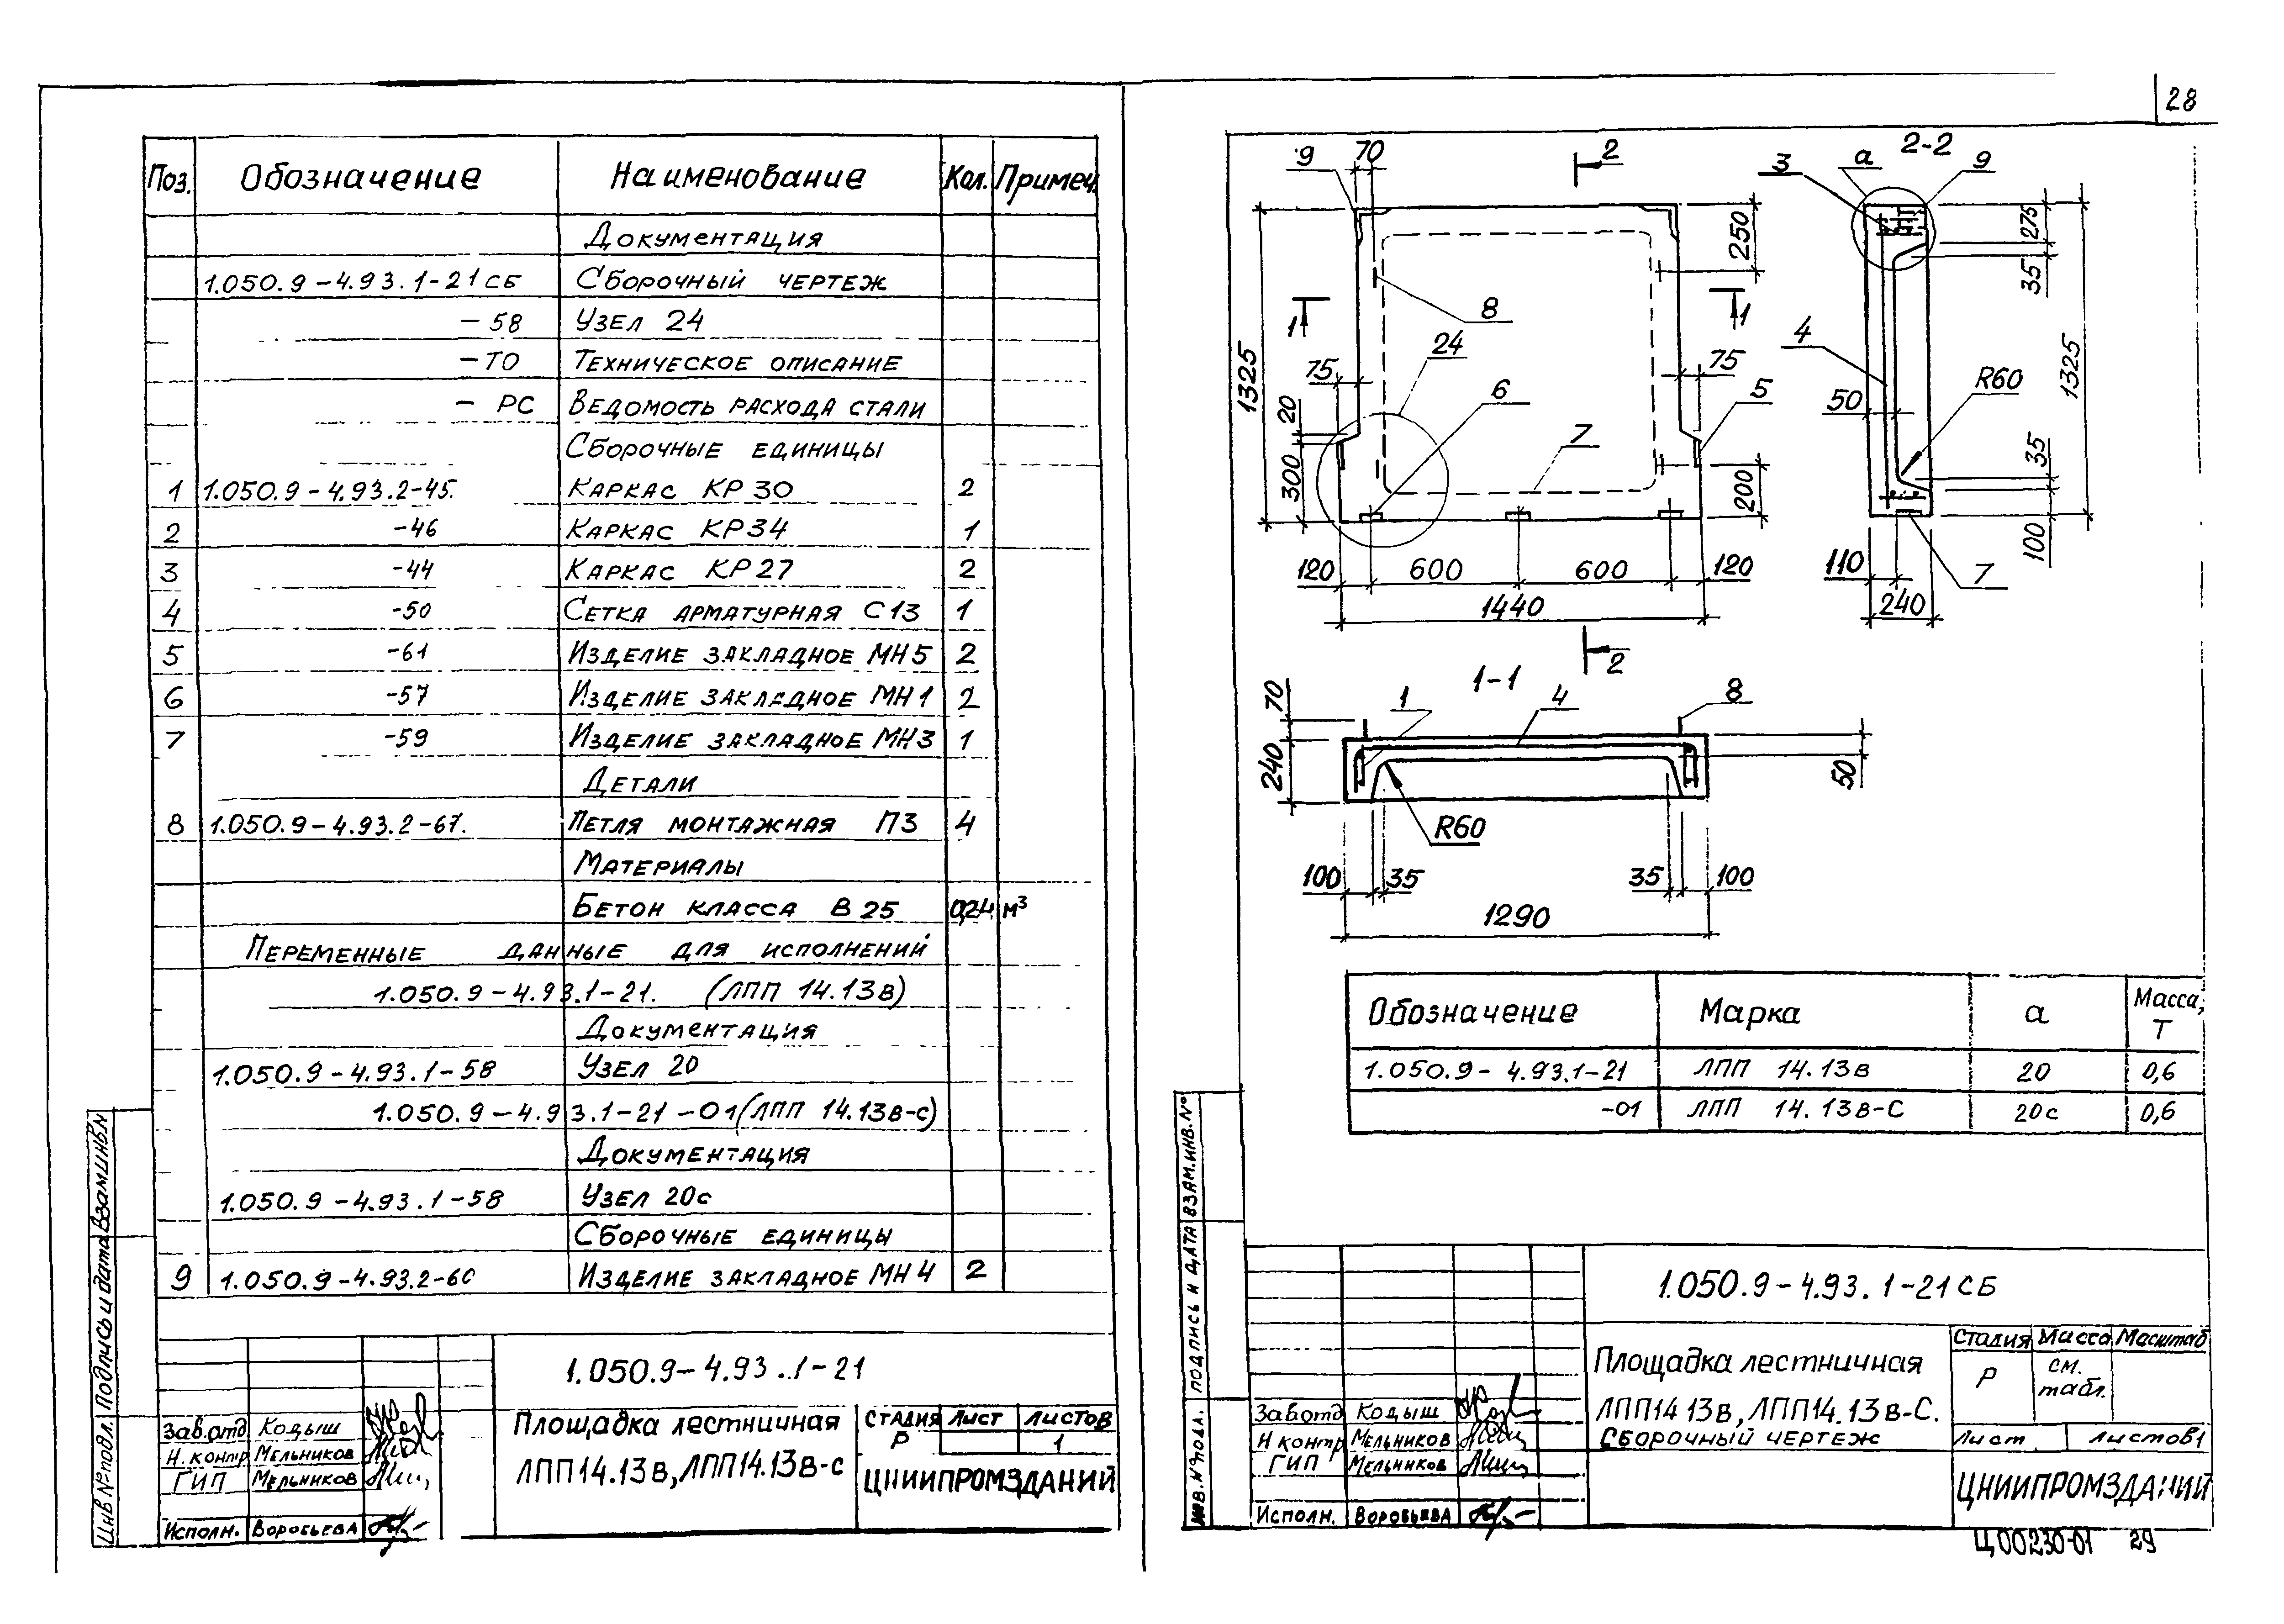 28
Поз. Обозначение Наименование Кол. Примеч.
Документация
1.050.9-4.93.1-21СБ Сборочный чертеж
-58 Узел 24
-ТО Техническое описание
- РС Ведомость расхода стали
Сборочные единицы
1 1.050.9-4.93.2-45. Каркас КР30 2
2 -46 Каркас КР34 1
3 -44 Каркас КР27 2
4 -50 Сетка арматурная С13 1
5 -61 Изделие закладное МН5 2
6 -57 Изделие закладное МН1 2
7 -59 Изделие закладное МН3 1
Детали
8 1.050.9-4.93.2-67. Петля монтажная П3 4
Материалы
Бетон класса В25 0,24 м³
Переменные данные для исполнений
1.050.9-4.93.1-21. (ЛПП 14.13в)
Документация
1.050.9-4.93.1-58 Узел 20
1.050.9-4.93.1-21-01 (ЛПП 14.13в-с)
Документация
1.050.9-4.93.1-58 Узел 20с
Сборочные единицы
9 1.050.9-4.93.2-60 Изделие закладное МН4 2
1.050.9-4.93.1-21
Площадка лестничная
ЛПП14.13в, ЛПП14.13в-с
Стадия Лист Листов
Р 1
ЦНИИПРОМЗДАНИЙ
Зав.отд Кодыш
Н.контр Мельников
ГИП Мельников
Исполн. Воробьева
Инв № подл. Подпись и дата Взам.инв N
9 70 2
2-2
а 3 9
1325 250 275 35
1 8 1
24 4 1325
75 75 R60
6 5 50
20 7 35
300 200 100
120 600 600 120 110 7
1440 240
2
1-1
70 1 4 8
240 50
R60
100 35 35 100
1290
Обозначение Марка а Масса, т
1.050.9-4.93.1-21 ЛПП 14.13в 20 0,6
-01 ЛПП 14.13в-С 20с 0,6
1.050.9-4.93.1-21СБ
Площадка лестничная
ЛПП14 13в, ЛПП14.13в-С.
Сборочный чертеж
Стадия Масса Масштаб
Р см. табл.
Лист Листов 1
ЦНИИПРОМЗДАНИЙ
Зав.отд Кодыш
Н контр Мельников
ГИП Мельников
Исполн. Воробьева
Инв. № подл. Подпись и дата Взам.инв.№
Ц00230-01 29